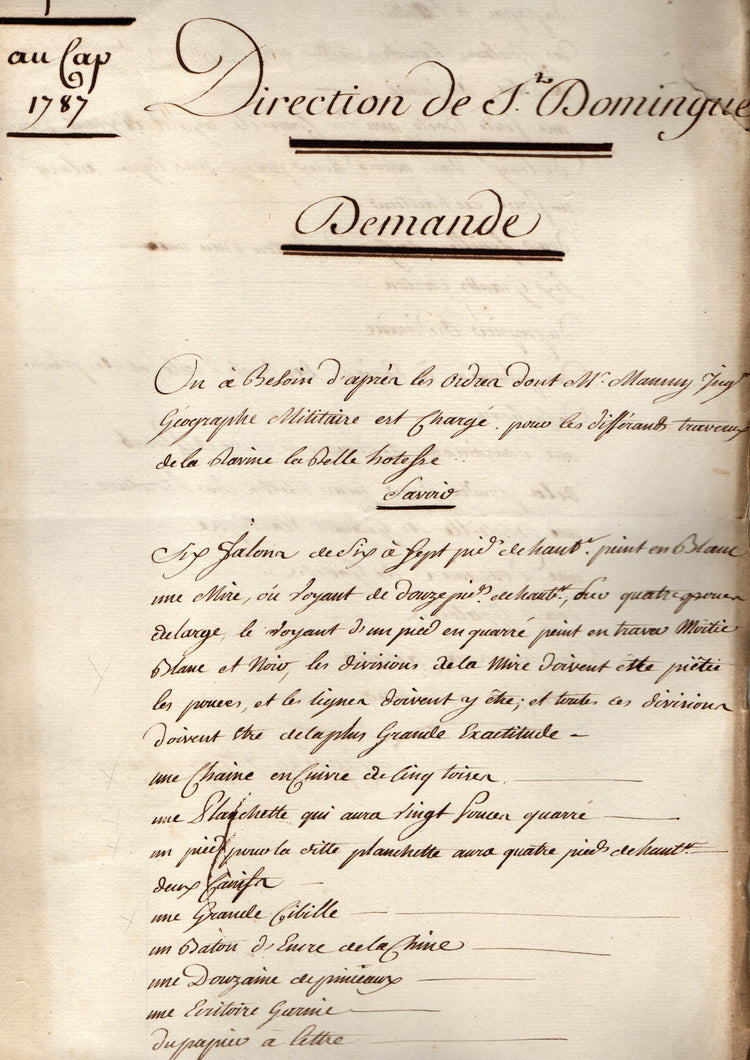 au Cap
1787
Direction de St. Domingue
Demande
On à Besoin d'après les ordres dont Mr. Maumy Ingr.
Géographe Militaire est Chargé, pour les différents traveaux
de la Ravine la Belle hotesse
Savoir
Six Jalons de Six à Sept pieds de hautr. peint en Blanc
une Mire, ou Voyant de Douze pieds de hautr., Sur quatre pouces
de large, le Voyant d'un pied en quarré peint en travers Moitié
Blanc et Noir, les divisions de la Mire doivent être piétée
les pouces, et les lignes doivent y être; et toutes ces divisions
doivent être de la plus Grande Exactitude -
une Chaine en Cuivre de Cinq toises
une Planchette qui aura Vingt Pouces quarré
un pied pour la ditte planchette aura quatre pieds de hautr.
deux Canifs
une Grande
un Bâton d'Encre de la Chine
une Douzaine de pinceaux
une Ecritoire Garnie
du papier à lettre